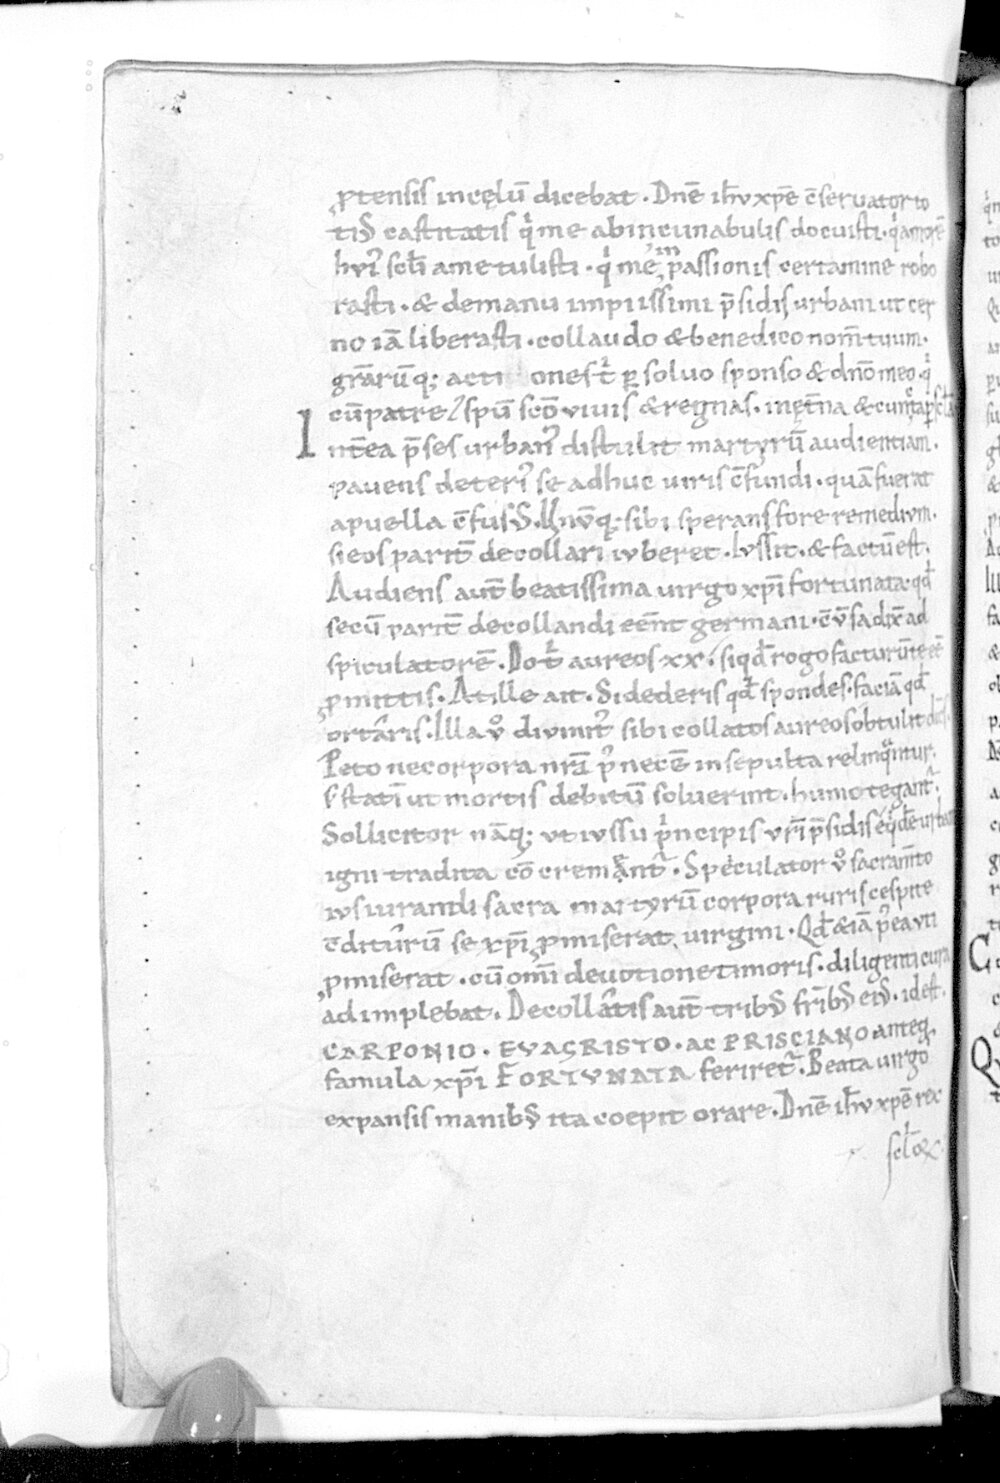 ꝓtensis incęlū dicebat . Dn̄e ih̄u xp̄e c̄seruator to
castitatis qͥ me abincunabulis docuisti . qͥ amorē
huiꝰ scl̄i ame tulisti . qͥ me in passionis certamine robo
rasti . & demanu impiissimi p̄sidis urbani ut cer
no iā liberasti . collaudo & benedico nom̄ tuum .
grār̄ū q; acti ones ꝑsoluo sponso & dn̄o meo . qͥ
cū patre & spū sc̄o uiuis & regnas .
Int̄ea p̄ses urbanꝰ distulit martyrū audientiam .
pauens deteriꝰ se adhuc uiris c̄fundi . quā fuerat
apuella c̄fusꝰ . sibi sperans fore remedium .
si eos parit̄ decollari iuberet . Iussit . & factū est .
Audiens aut̄ beatissima uirgo xp̄i fortunata . qd̄
secū parit̄ decollandi een̄t germani . c̄ūsa dix̄ ad
spiculatorē . Do t̄ aureos xx . si qd̄ rogo facturū te eē
ꝓmittis . At ille ait . Si dederis qd̄ spondes . faciā qd̄
ortāris . Illa ū diuinitꝰ sibi collatos aureos obtulit
Peto ne corpora nr̄i pꝰ necē insepulta relinqͣntur .
S statī ut mortis debitū soluerint . humo tegant̄ .
Sollicitor nāq; ut iussu pͥncipis ur̄i p̄sidis
igni tradita cō cremānt̄ . Speculator ū sacram̄to
iusiurandi sacra martyrū corpora ruris cespite
c̄ditūrū se xp̄i ꝓmiserat uirgini . Qd̄ & iā p̄ea uti
ꝓmiserat . cū om̄i deuotione timoris . diligenti cura
adimplebat . Decollātis aut̄ tribꝰ fr̄ibꝰ eiꝰ . id est .
CARPONIO . EVAGRISTO . ac PRISCIANO anteq̄
famula xp̄i FORTVNATA feriret̄ . Beata uirgo
expansis manibꝰ ita coepit orare . Dn̄e ih̄u xp̄e rex